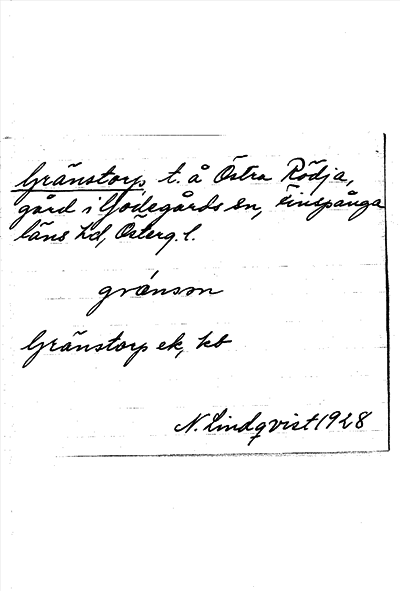 Gränstorp, t. å Östra Rödja,
gård i Godegårds sn, Finspånga
läns hd, Österg. l.
Gränstorp ek, kb
N. Lindqvist 1928